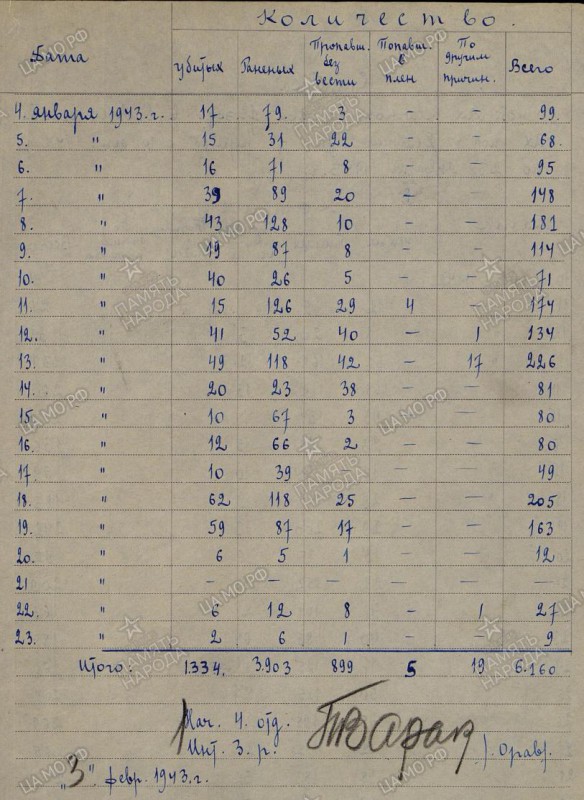 Количество.
Дата убитых Раненых Пропавш. без вести Попавш. в плен По другим причин. Всего
4. января 1943.г. 17 79. 3 - - 99.
5. " 15 31 22 - - 68.
6. " 16 71 8 - - 95
7. " 39 89 20 - - 148
8. " 43 128 10 - - 181
9. " 19 87 8 - - 114
10. " 40 26 5 - - 71
11. " 15 126 29 4 - 174
12. " 41 52 40 - 1 134
13. " 49 118 42 - 17 226
14. " 20 23 38 - - 81
15. " 10 67 3 - - 80
16. " 12 66 2 - - 80
17. " 10 39 - - - 49
18. " 62 118 25 - - 205
19. " 59 87 17 - - 163
20. " 6 5 1 - - 12
21 " - - - - - -
22. " 6 12 8 - 1 27
23. " 2 6 1 - - 9
Итого: 1.334. 3.903 899 5 19 6.160
Нач. 4. отд.
Инт. 3. р.
"3" февр. 1943.г.
ЦАМО РФ
ПАМЯТЬ НАРОДА